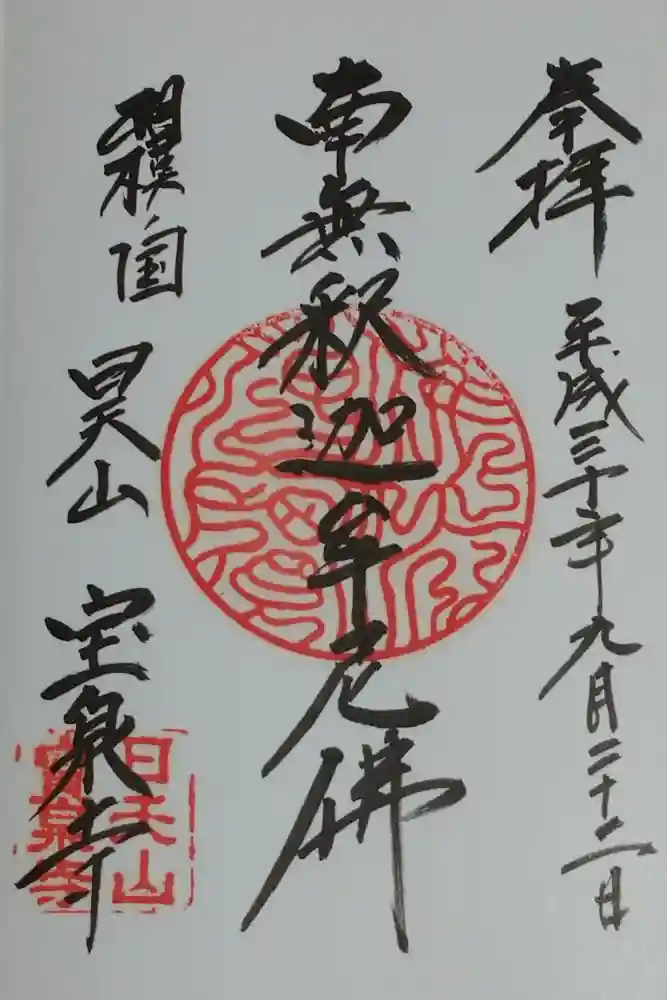 奉拝
平成三十年九月二十二日
南無釈迦牟尼佛
相模国
日天山
宝泉寺
日天山
寶泉寺